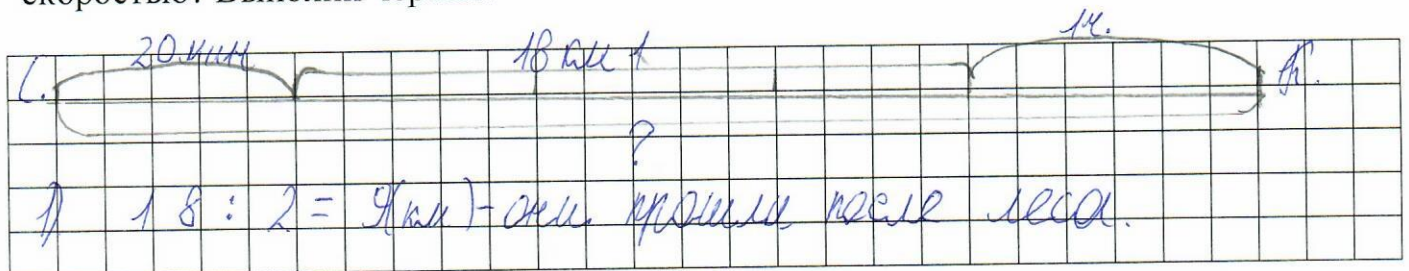 скоростью? Выполни
20 мин 18 км 1 ч.
С.
?
1) 18 : 2 = 9(км)-они прошли после леса.